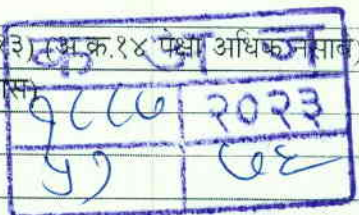 १३) (अ.क्र.१४ पेक्षा अधिक नसावे)
क ज न
१८८७ २०२३
५१ ७६